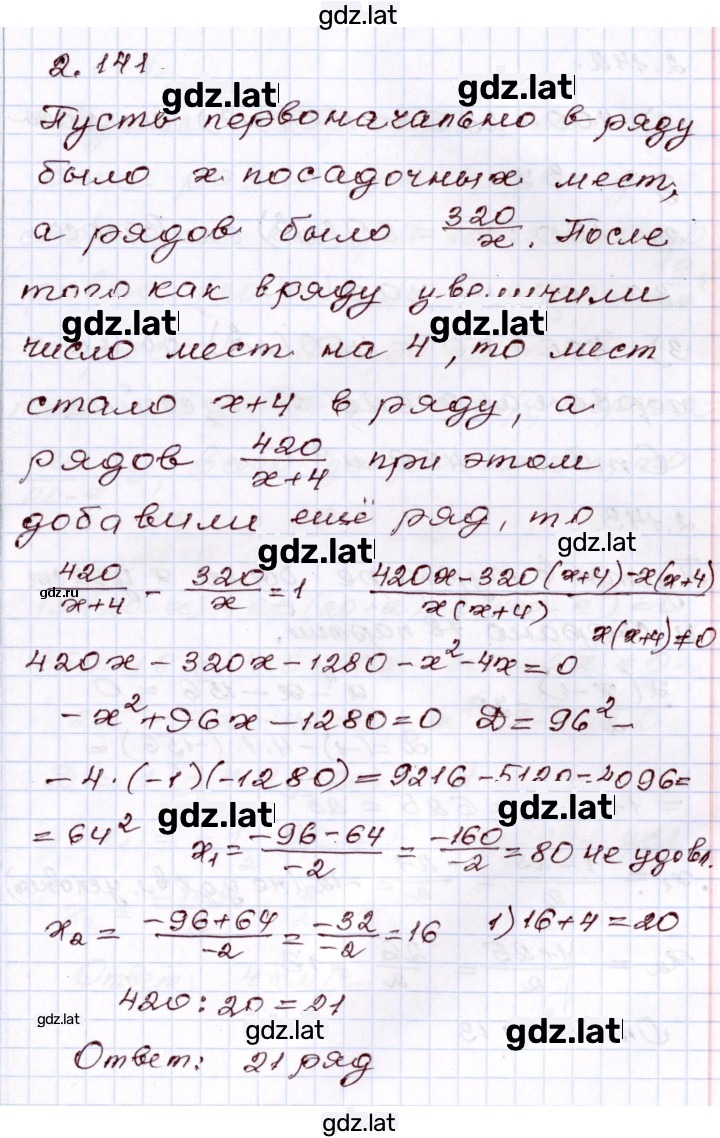 gdz.lat
2.141
gdz.lat gdz.lat
Пусть первоначально в ряду
было x посадочных мест,
а рядов было 320/x. После
того как в ряду увеличили
gdz.lat gdz.lat
число мест на 4, то мест
стало x+4 в ряду, а
рядов 420/x+4 при этом
добавили ещё ряд, то
gdz.lat gdz.lat
gdz.ru
420/x+4 - 320/x = 1 420x-320(x+4)-x(x+4)/x(x+4)
x(x+4)≠0
420x-320x-1280-x²-4x=0
-x²+96x-1280=0 D=96²-
-4·(-1)(-1280)=9216-5120=4096=
gdz.lat gdz.lat
=64² x₁= -96-64/-2 = -160/-2 =80 не удовл.
x₂= -96+64/-2 = -32/-2 =16 1) 16+4=20
420:20=21
gdz.lat gdz.lat gdz.lat
Ответ: 21 ряд
gdz.lat